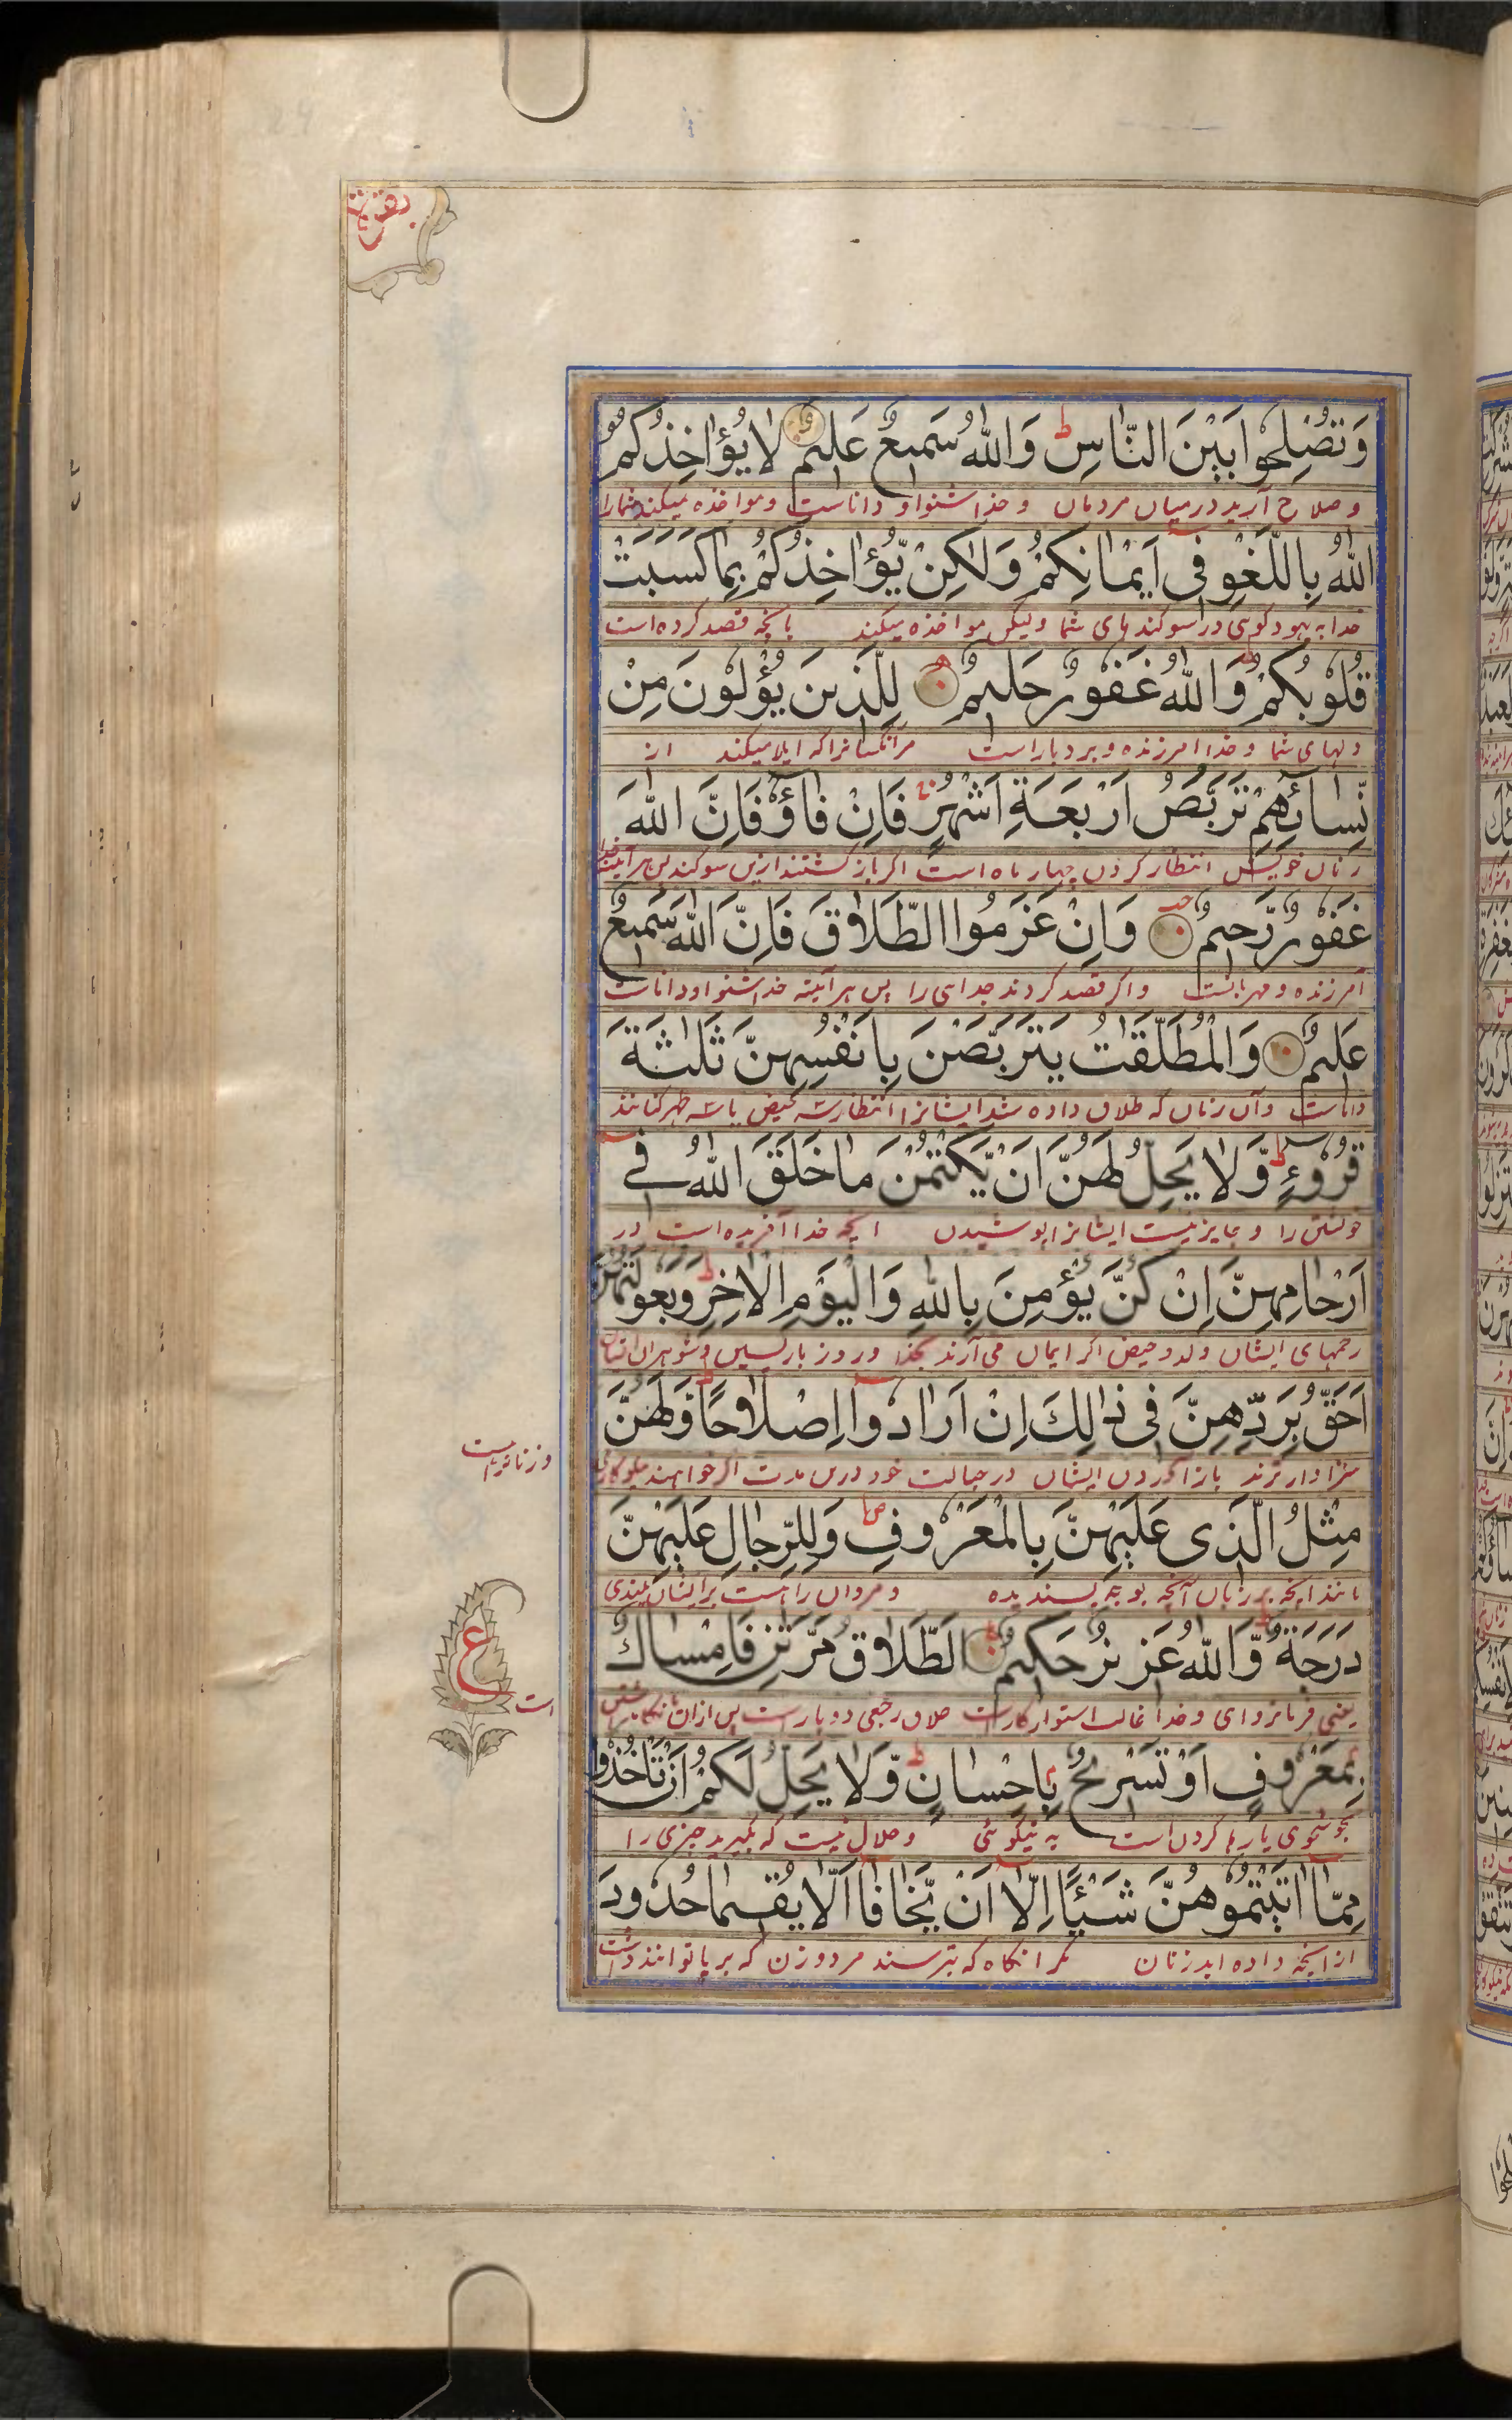 بقره
وَتُصْلِحُوا بَيْنَ النَّاسِ ط وَاللهُ سَمِيعٌ عَلِيمٌ لَا يُؤَاخِذُكُمُ
و صلاح آرید درمیان مردمان و خدا شنوا و داناست و مواخذه میکند شمارا
اللهُ بِاللَّغْوِ فِي أَيْمَانِكُمْ وَلَكِنْ يُؤَاخِذُكُمْ بِمَا كَسَبَتْ
خدا به بیهوده کوئی در سوکندهای شما ولیکن مواخذه میکند بآنچه قصد کرده است
قُلُوبُكُمْ ط وَاللهُ غَفُورٌ حَلِيمٌ لِلَّذِينَ يُؤْلُونَ مِنْ
دلهای شما و خدا امرزنده و بردبار است مرآنکسانرا که ایلا میکند از
نِسَائِهِمْ تَرَبُّصُ أَرْبَعَةِ أَشْهُرٍ فَإِنْ فَاؤُ فَإِنَّ اللهَ
زنان خویش انتظار کردن چهار ماه است اکر باز کشتند ازین سوکند پس هر آینه خدا
غَفُورٌ رَّحِيمٌ وَإِنْ عَزَمُوا الطَّلَاقَ فَإِنَّ اللهَ سَمِيعٌ
آمرزنده و مهربانست و اکر قصد کردند جدائی را پس هر آینه خدا شنوا و داناست
عَلِيمٌ وَالْمُطَلَّقَاتُ يَتَرَبَّصْنَ بِأَنْفُسِهِنَّ ثَلٰثَةَ
داناست و آن زنان که طلاق داده شد ایشانرا انتظار سه حیض یا سه طهر کنانند
قُرُوءٍ ط وَّلَا يَحِلُّ لَهُنَّ أَنْ يَّكْتُمْنَ مَا خَلَقَ اللهُ فِي
خویشتن را و جایز نیست ایشانرا پوشیدن انچه خدا آفریده است در
أَرْحَامِهِنَّ إِنْ كُنَّ يُؤْمِنَّ بِاللهِ وَالْيَوْمِ الْاخِرِ ط وَبُعُولَتُهُنَّ
رحمهای ایشان ولد و حیض اکر ایمان می آرند بخدا و روز بازپسین و شوهران ایشان
أَحَقُّ بِرَدِّهِنَّ فِي ذَالِكَ إِنْ أَرَادُوا إِصْلَاحًا ط وَلَهُنَّ
سزاوارترند باز آوردن ایشان در حبالت خود درین مدت اکر خواهند نیکوکاری
و زنانراست
مِثْلُ الَّذِي عَلَيْهِنَّ بِالْمَعْرُوفِ ص وَلِلرِّجَالِ عَلَيْهِنَّ
مانند انچه بر زنان آنچه بوجه پسندیده و مردان را هست بر ایشان بلندی
دَرَجَةٌ ط وَّاللهُ عَزِيزٌ حَكِيمٌ الطَّلَاقُ مَرَّتٰنِ فَإِمْسَاكٌ
ع
یعنی فرمانروای و خدا غالب استوار کار است طلاق رجعی دو بار است پس ازان نکاهداشتن
است
بِمَعْرُوفٍ أَوْ تَسْرِيحٌ بِإِحْسَانٍ ط وَّلَا يَحِلُّ لَكُمْ أَنْ تَأْخُذُوا
بخوشخوی یا رها کردن است به نیکوئی و حلال نیست که بکیرید چیزی را
مِمَّا اتَيْتُمُوهُنَّ شَيْئًا إِلَّا أَنْ يَّخَافَا أَلَّا يُقِيمَا حُدُودَ
از انچه داده اید زنان مکر انکاه که بترسند مرد و زن که برپا نتوانند داشت